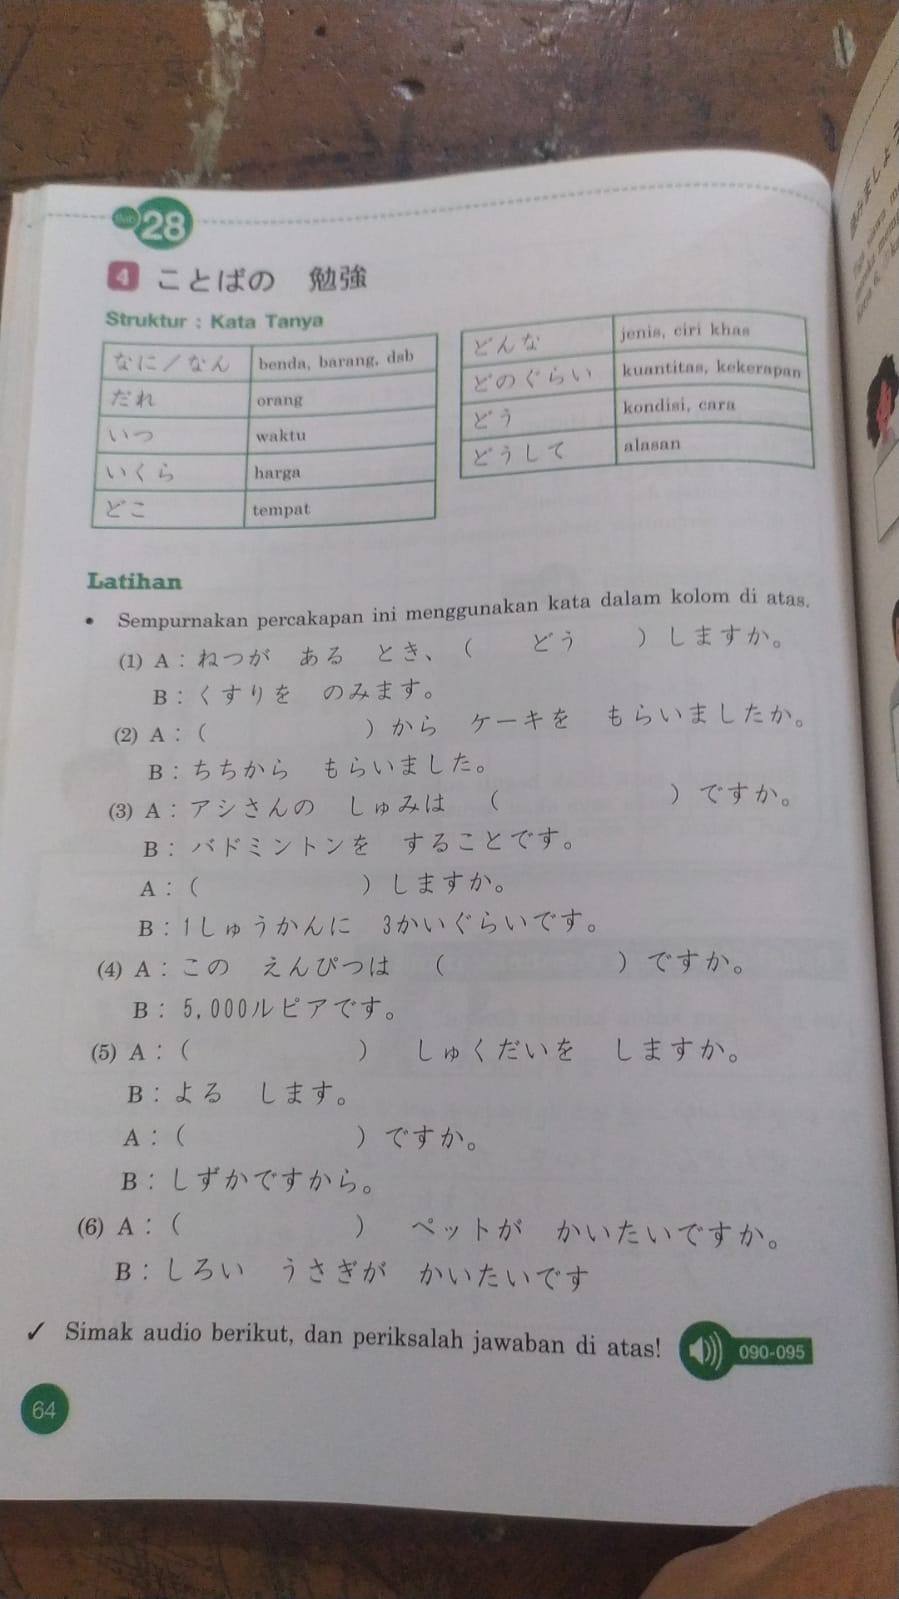 Bab 28
4 ことばの 勉強
Struktur : Kata Tanya
なに／なん benda, barang, dsb
だれ orang
いつ waktu
いくら harga
どこ tempat
どんな jenis, ciri khas
どのぐらい kuantitas, kekerapan
どう kondisi, cara
どうして alasan
Latihan
• Sempurnakan percakapan ini menggunakan kata dalam kolom di atas.
(1) A：ねつが ある とき、（ どう ）しますか。
B：くすりを のみます。
(2) A：（ ）から ケーキを もらいましたか。
B：ちちから もらいました。
(3) A：アシさんの しゅみは （ ）ですか。
B：バドミントンを することです。
A：（ ）しますか。
B：1しゅうかんに 3かいぐらいです。
(4) A：この えんぴつは （ ）ですか。
B：5,000ルピアです。
(5) A：（ ） しゅくだいを しますか。
B：よる します。
A：（ ）ですか。
B：しずかですから。
(6) A：（ ） ペットが かいたいですか。
B：しろい うさぎが かいたいです
✓ Simak audio berikut, dan periksalah jawaban di atas!
090-095
64